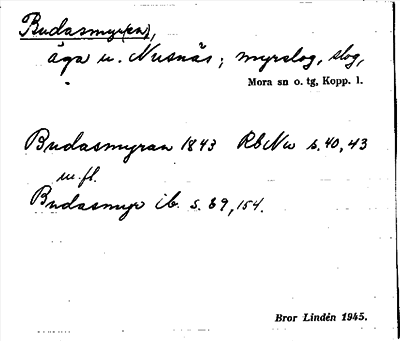 Budasmyr(en),
äga u. Nusnäs; myrslog, slog,
Mora sn o. tg, Kopp. l.
Budasmyran 1843 RbNu s. 40, 43
m. fl.
Budasmyr ib. s. 89, 154.
Bror Lindén 1945.